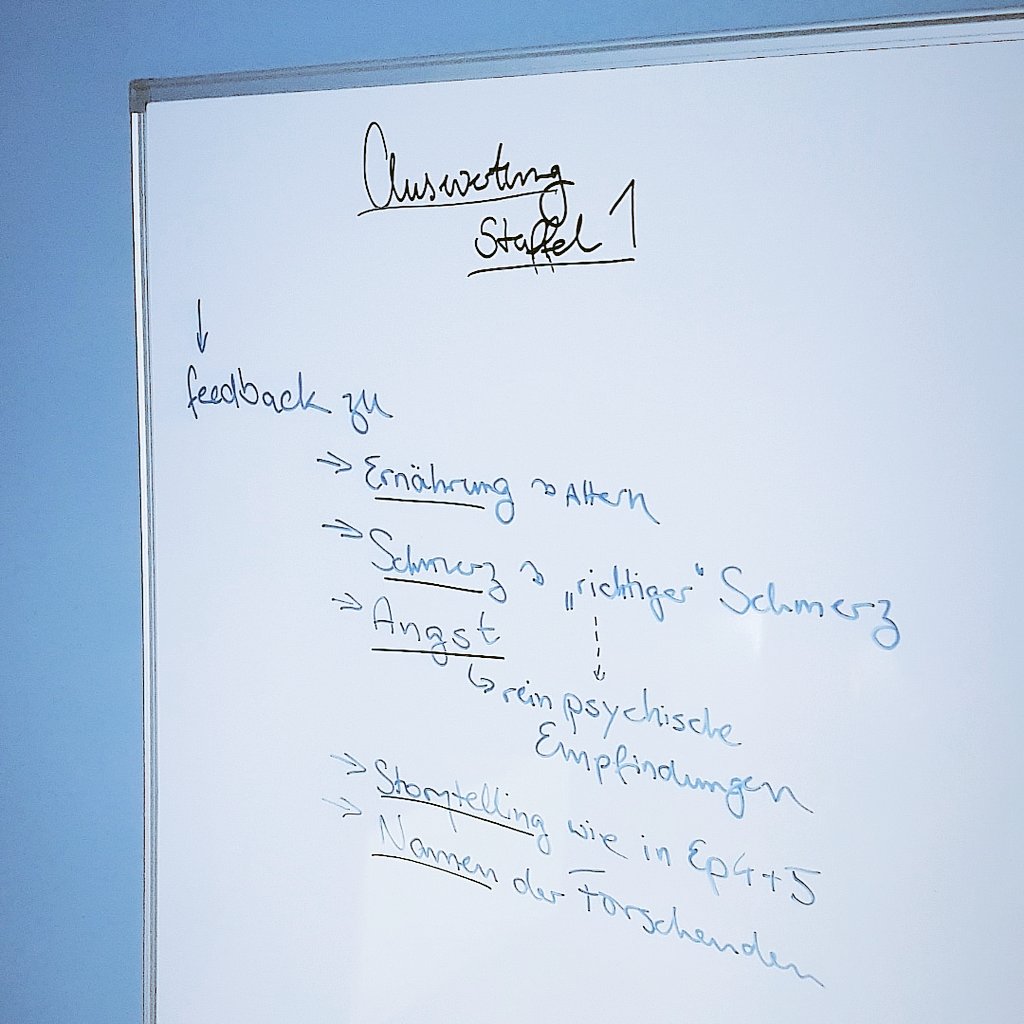 Auswertung
Staffel 1
↓
feedback zu
⇒ Ernährung → Altern
⇒ Schmerz → „richtiger“ Schmerz
⇒ Angst
↳ rein psychische
Empfindungen
⇒ Storytelling wie in Ep4+5
⇒ Namen der Forschenden